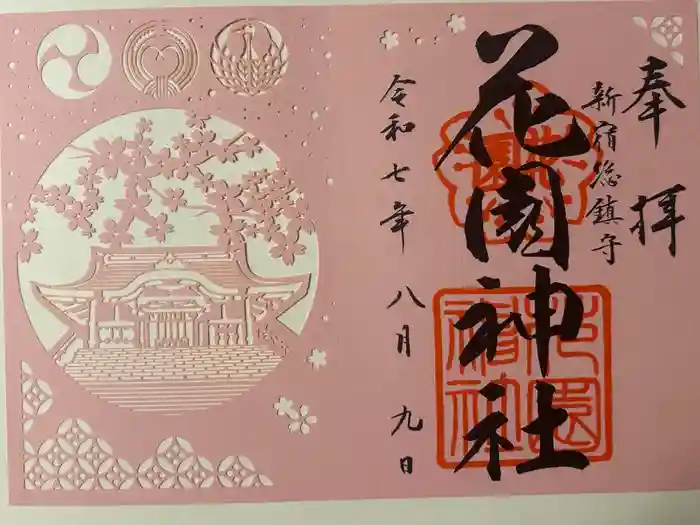 奉拝
新宿総鎮守
花園神社
令和七年 八月 九日
花園神社